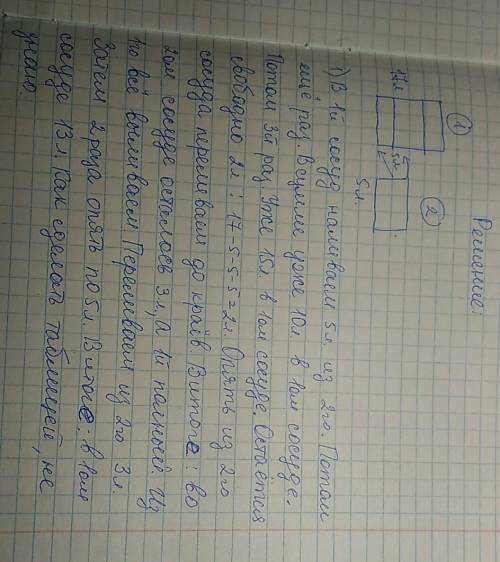 Решение:
① ②
17л
5л
5л.
1) В 1й сосуд наливаем 5л из 2го. Потом
ещё раз. В сумме уже 10л в 1ом сосуде.
Потом 3й раз. Уже 15л в 1ом сосуде. Остаётся
свободно 2л: 17-5-5-5=2л. Опять из 2го
сосуда переливаем до краёв. В итоге: во
2ом сосуде осталось 3л, а 1й полный. Из
1го всё выливаем. Переливаем из 2го 3л.
Затем 2 раза опять по 5л. В итоге: в 1ом
сосуде 13л. Как сделать таблицей, не
знаю.